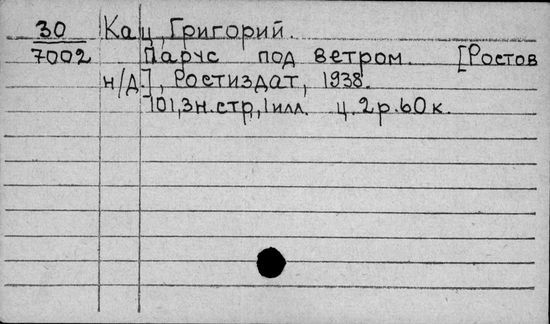 30 Кац, Григорий.
7002 Парус под ветром. [Ростов
н/Д.], Ростиздат, 1938.
101, 3 н. стр., 1 илл. ц. 2 р. 60 к.